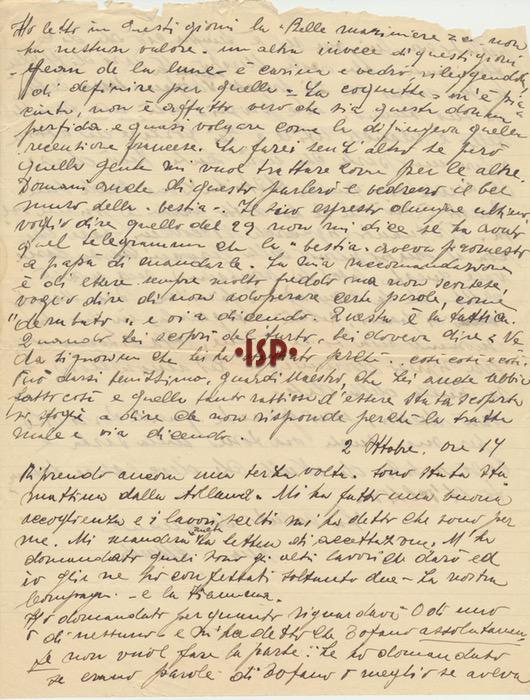 Ho letto in questi giorni la "Belle marinière" ... non
ha nessun valore - un altra invece di questi giorni
- Jean de la lune - è carina e vedrò, rileggendola
di definire per quella - La coquette - m'è pia
ciuta, non è affatto vero che sia questa donna
perfida e quasi volgare come la dipingeva quella
recensione francese. La farei senz'altro se però
quella gente mi vuol trattare come per le altre.
Domani anche di questo parlerò e vedremo il bel
muso della "bestia". Il suo espresso ultimo
voglio dire quello del 29 non mi dice se ha avuto
quel telegramma che la "bestia" aveva promesso
a papà di mandarle. La mia raccomandazione
è di essere sempre molto freddo ma non scortese,
voglio dire di non adoperare certe parole, come
"derubato" e via dicendo. Questa è la tattica.
Quando Lei scoprì del furto, Lei doveva dire
da signorina che perchè... così e così.
Può darsi benissimo, guardi Maestro, che Lei anche abbia
fatto così e quella d'essere stata scoperta
si sfoga a dire che non risponde perchè la tratta
male e via dicendo.
2 Ottobre, ore 14
Riprendo ancora una terza volta. Sono stata sta
mattina dalla . Mi ha fatto una buona
accoglienza e i lavori scelti mi ha detto che sono per
me. Mi manderà questa la lettera di accettazione. M'ha
domandato quali sono gli altri lavori che darò ed
io glie ne ho confessati soltanto due - La nostra
Compagn. - e la
Ho domandato per quanto riguardava O di uno
o di nessuno - e mi ha detto che Tofano assolutamen
te non vuol fare la parte. Le ho domandato
se erano parole di Tofano o meglio se aveva
ISP